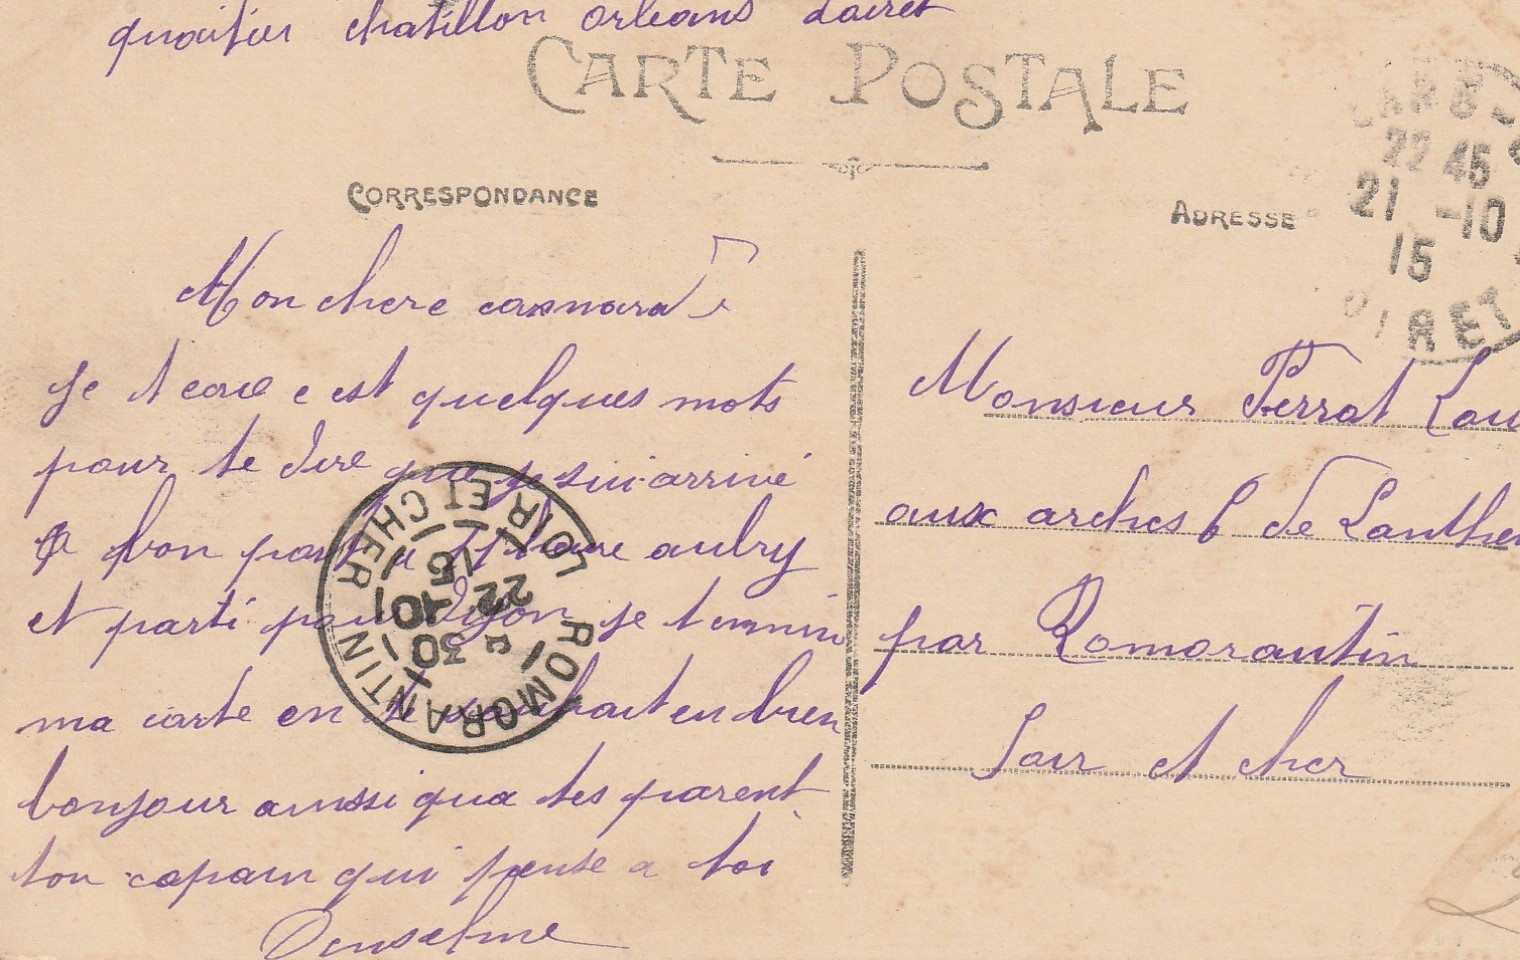 quartier chatillon orleans Loiret
CARTE POSTALE
CORRESPONDANCE
ADRESSE
22 45
21 -10
15
OIRET
Mon chere camarad
Je t ecrie c est quelques mots
pour te dire que je sui arrivé
a bon port a aubry
et parti pour Dijon je termine
ma carte en te souhait en bien
bonjour ainssi qua tes parent
ton copain qui pense a toi
Anselme
Monsieur Ferrat Lou
aux arches C de Lanthen
par Romorantin
Loir et cher
ROMORANTIN
LOIR ET CHER
22 30
10
15